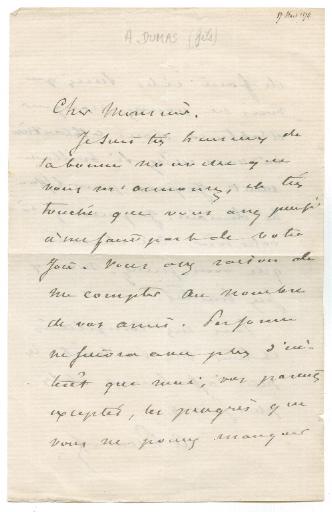 A. DUMAS (fils)
Cher Monsieur.
Je suis très heureux de
la bonne nouvelle que
vous m'annoncez et très
touché que vous ayez pensé
à me faire part de votre
joie. Vous avez raison de
me compter au nombre
de vos amis. Personne
ne suivra avec plus d'in-
térêt que moi, vos parents
exceptés, les progrès que
vous ne pouvez manquer